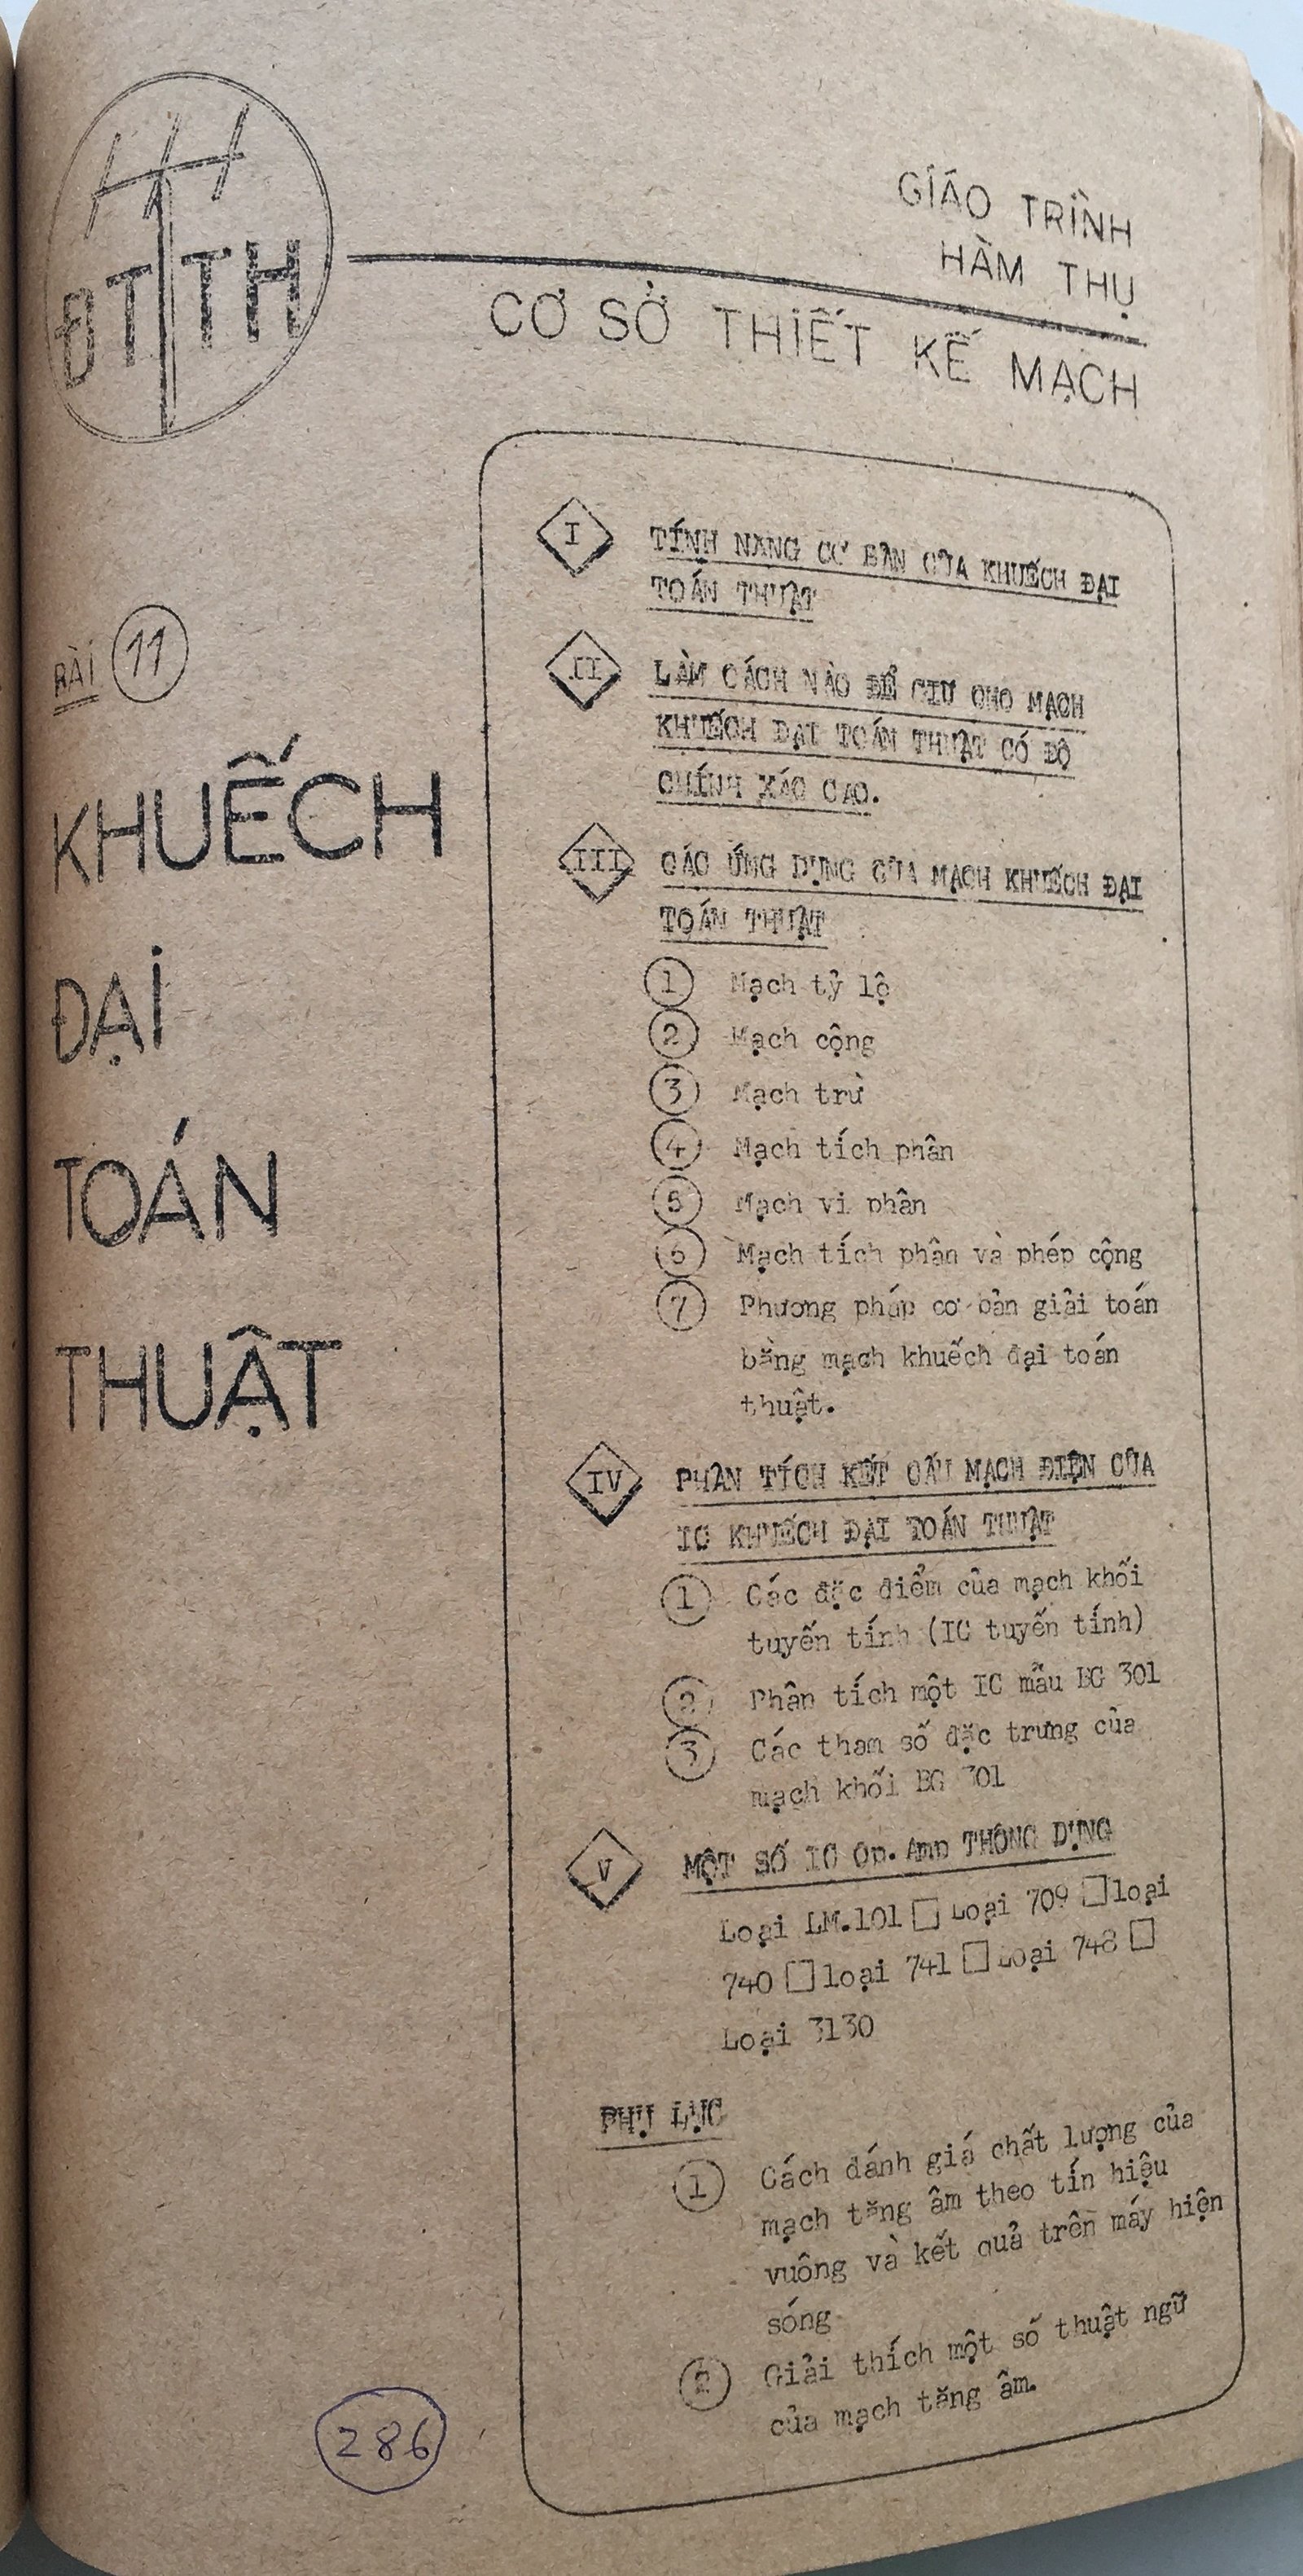 ĐTTH
GIÁO TRÌNH
HÀM THỤ
CƠ SỞ THIẾT KẾ MẠCH
BÀI 11
KHUẾCH
ĐẠI
TOÁN
THUẬT
I TÍNH NĂNG CƠ BẢN CỦA KHUẾCH ĐẠI
TOÁN THUẬT
II LÀM CÁCH NÀO ĐỂ GIỮ CHO MẠCH
KHUẾCH ĐẠI TOÁN THUẬT CÓ ĐỘ
CHÍNH XÁC CAO.
III CÁC ỨNG DỤNG CỦA MẠCH KHUẾCH ĐẠI
TOÁN THUẬT
1 Mạch tỷ lệ
2 Mạch cộng
3 Mạch trừ
4 Mạch tích phân
5 Mạch vi phân
6 Mạch tích phân và phép cộng
7 Phương pháp cơ bản giải toán
bằng mạch khuếch đại toán
thuật.
IV PHÂN TÍCH KẾT CẤU MẠCH ĐIỆN CỦA
IC KHUẾCH ĐẠI TOÁN THUẬT
1 Các đặc điểm của mạch khối
tuyến tính (IC tuyến tính)
2 Phân tích một IC mẫu BG 301
3 Các tham số đặc trưng của
mạch khối BG 301
V MỘT SỐ IC Op.Amp THÔNG DỤNG
Loại LM.101 □ Loại 709 □ loại
740 □ loại 741 □ Loại 748 □
Loại 3130
PHỤ LỤC
1 Cách đánh giá chất lượng của
mạch tăng âm theo tín hiệu
vuông và kết quả trên máy hiện
sóng
2 Giải thích một số thuật ngữ
của mạch tăng âm.
286